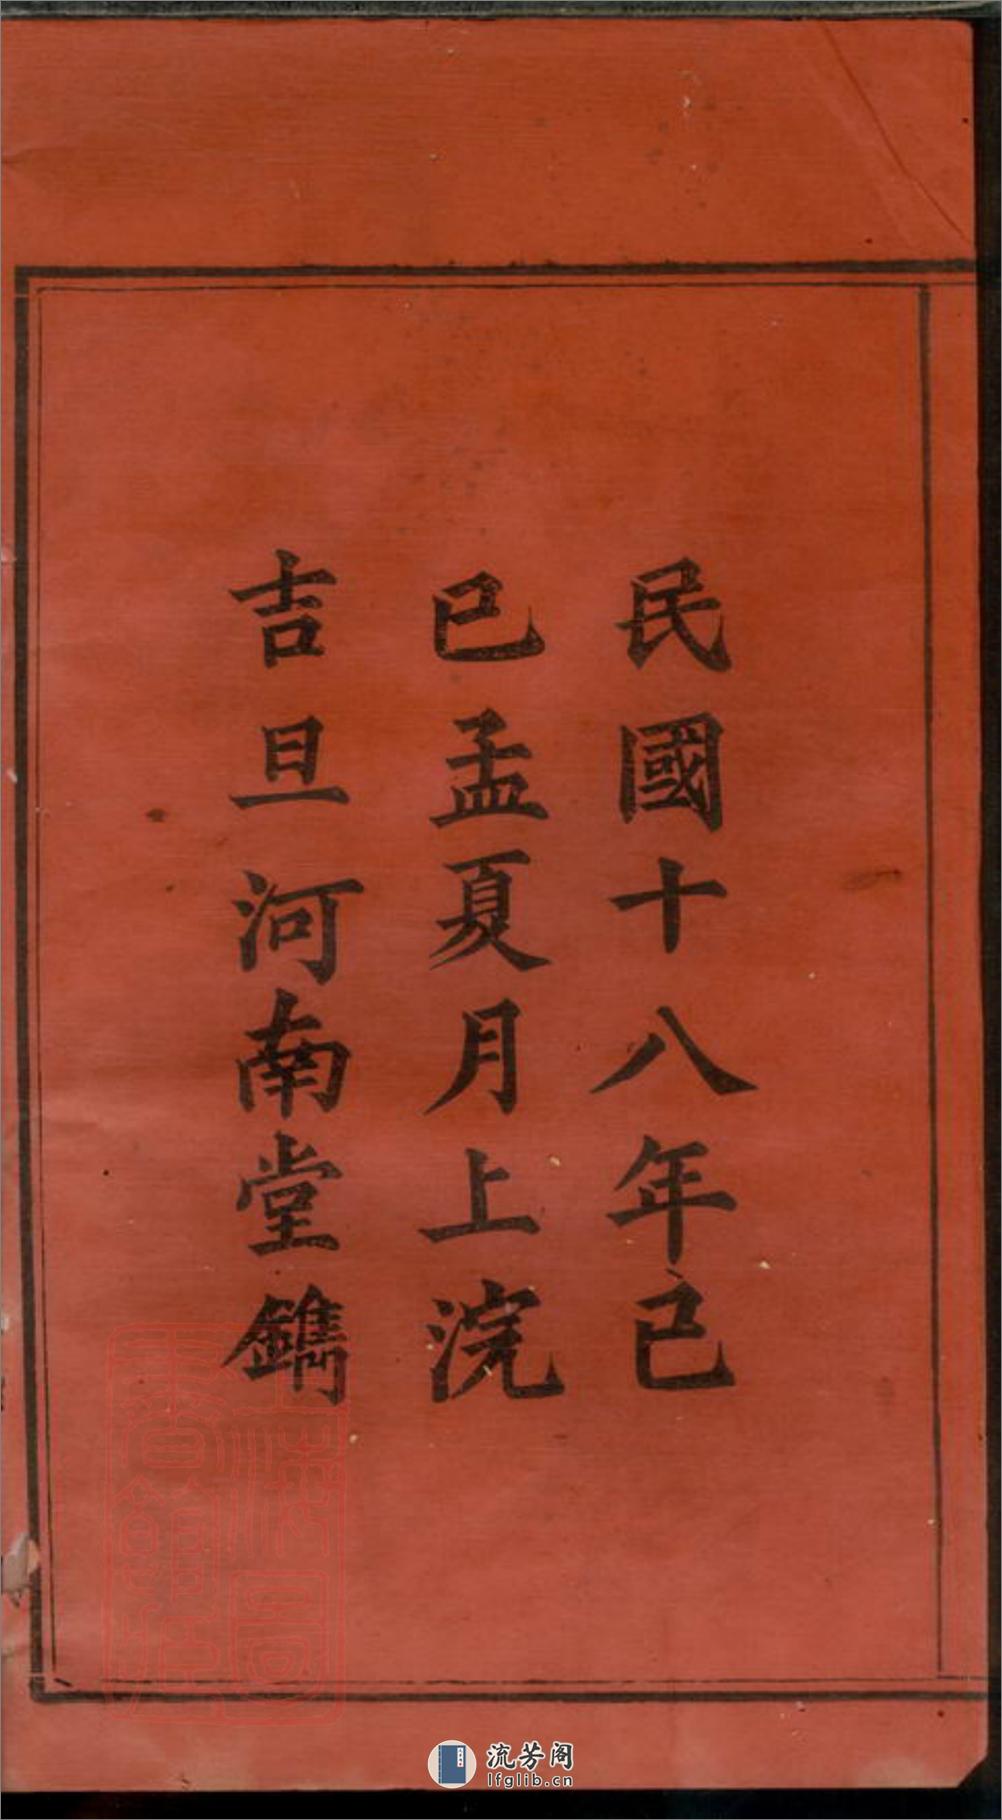 民國十八年己
巳孟夏月上浣
吉旦河南堂鐫
流芳阁
lfglib.cn